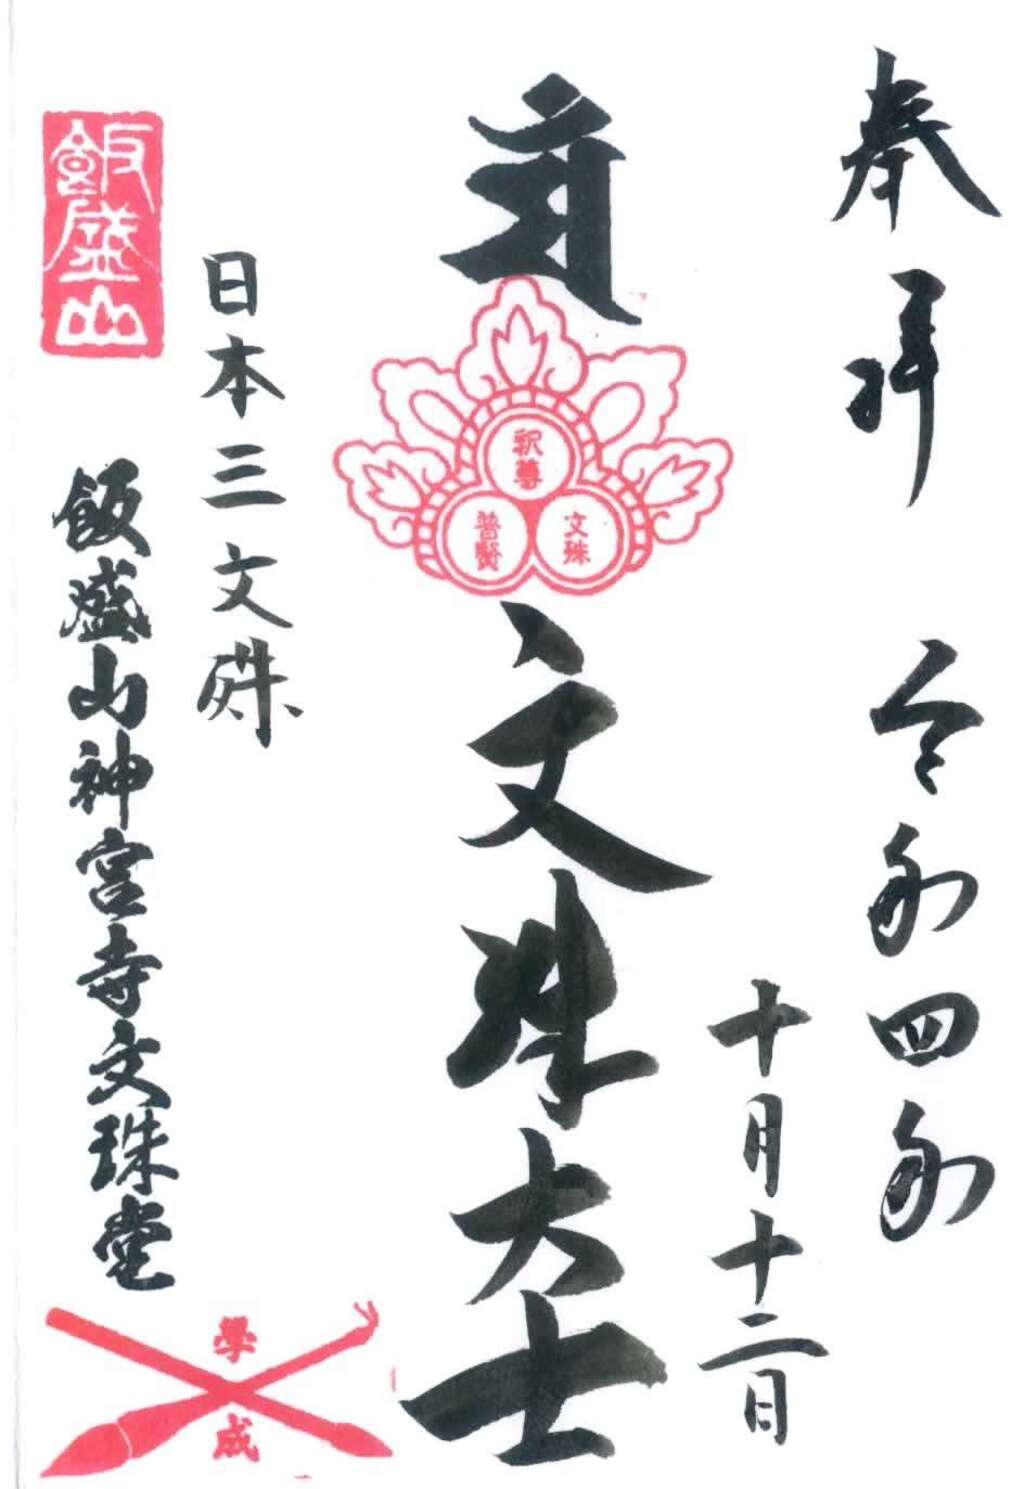 奉拝
令和四年
十月十二日
文殊大士
釈尊
文殊
普賢
日本三文殊
飯盛山神宮寺文殊堂
飯盛山
學
成